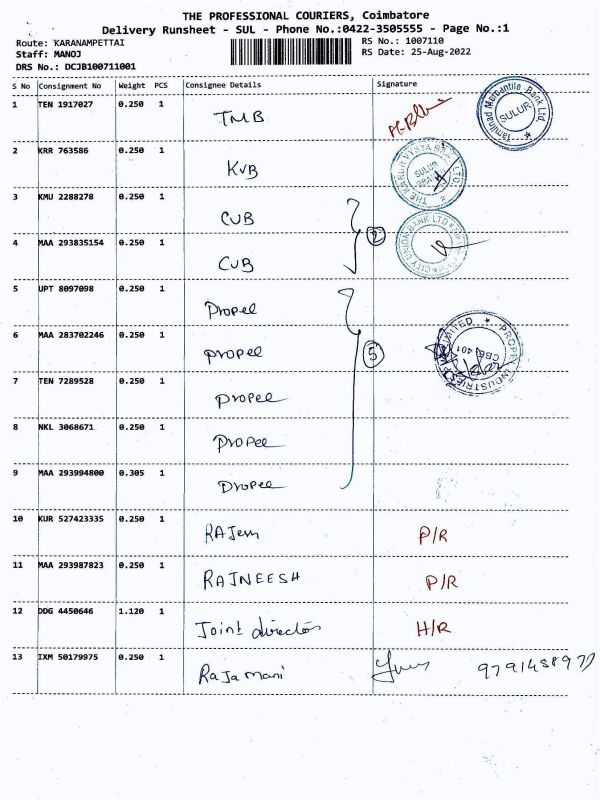 THE PROFESSIONAL COURIERS, Coimbatore
Delivery Runsheet - SUL - Phone No.:0422-3505555 - Page No.:1
Route: KARANAMPETTAI RS No.: 1007110
Staff: MANOJ RS Date: 25-Aug-2022
DRS No.: DCJB100711001
S No Consignment No Weight PCS Consignee Details Signature
1 TEN 1917027 0.250 1 TMB
Tamilnad Mercantile Bank Ltd.
SULUR
2 KRR 763586 0.250 1 KVB
THE KARUR VYSYA BANK LTD.
SULUR
3 KMU 2288278 0.250 1 CUB
2
CITY UNION BANK LTD
4 MAA 293835154 0.250 1 CUB
5 UPT 8097098 0.250 1 Propel
6 MAA 283702246 0.250 1 Propel
5
PROPEL INDUSTRIES LIMITED
CBE 401
7 TEN 7289528 0.250 1 Propel
8 NKL 3068671 0.250 1 Propel
9 MAA 293994800 0.305 1 Propel
10 KUR 527423335 0.250 1 P/R
11 MAA 293987823 0.250 1 RAJNEESH P/R
12 DDG 4450646 1.120 1 Joint director H/R
13 IXM 50179975 0.250 1 Rajamani